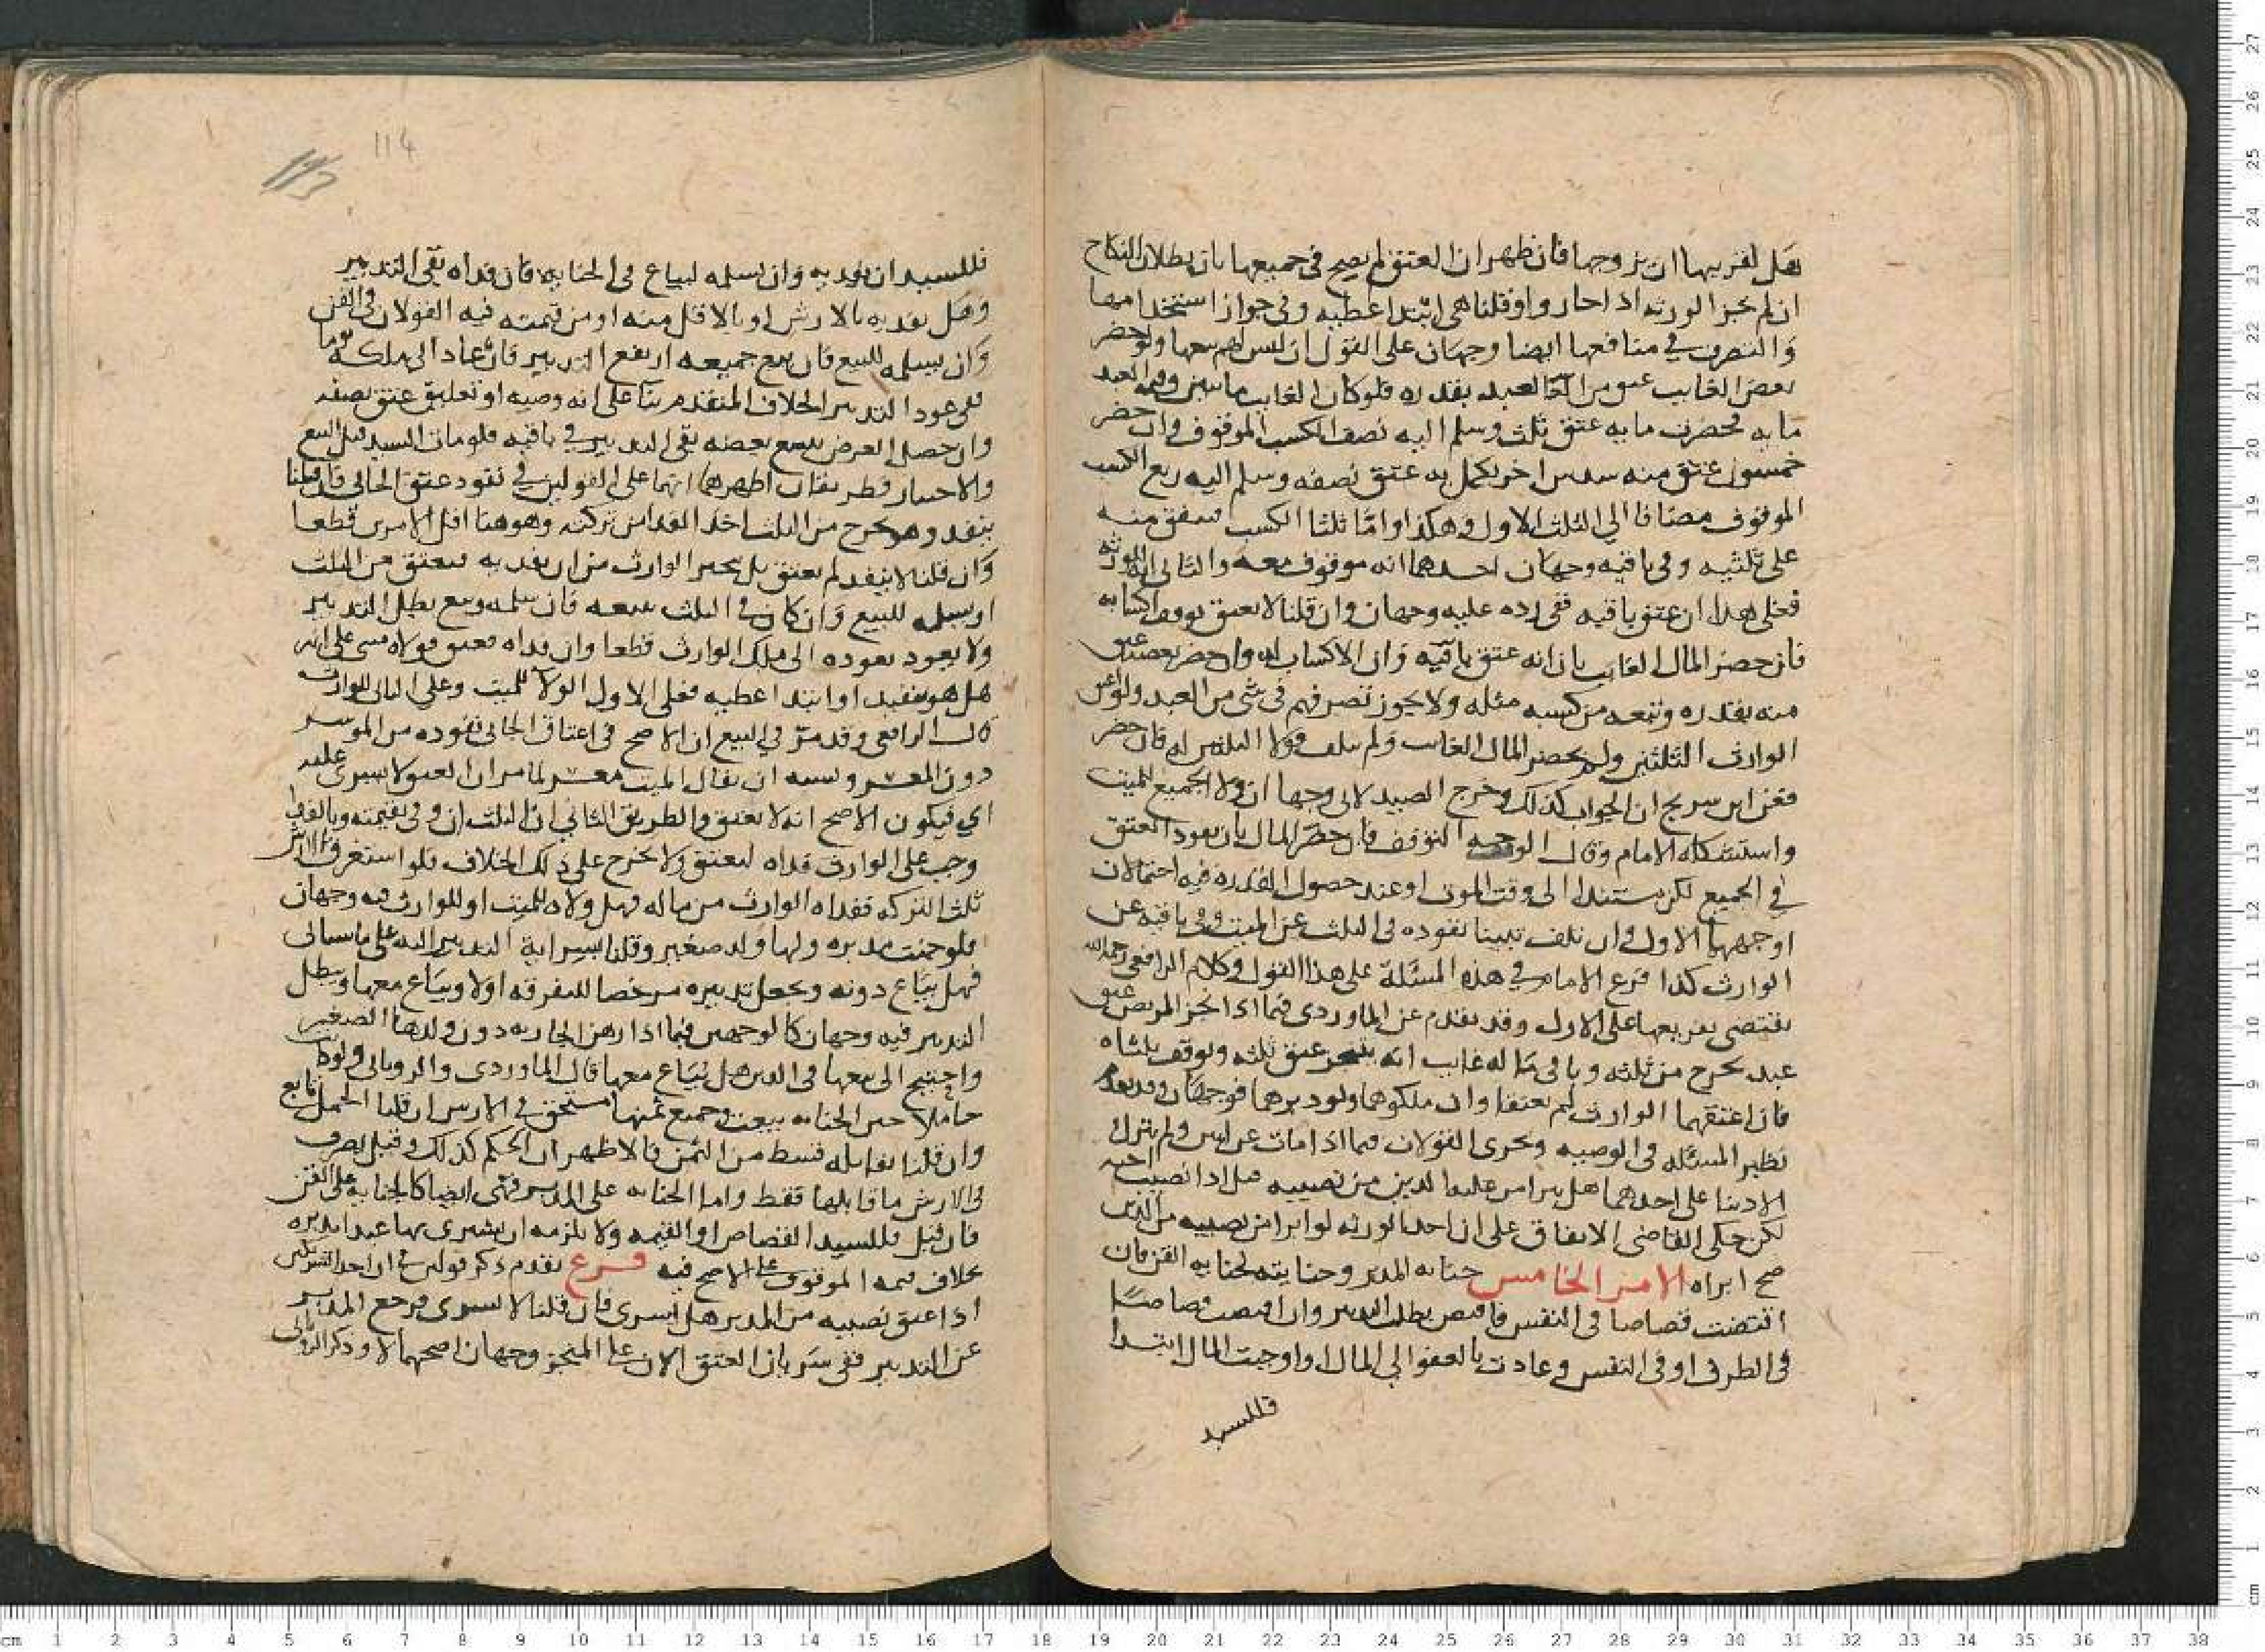 هل لقريبها ان يزوجها فان ظهر ان العتق لم يصح في جميعها بان بطلان النكاح
ان لم يجز الورثة اذا جازوا وقلنا هي ابتدا عطيه وفي جواز استخدامها
والتصرف في منافعها ايضا وجهان على القول ان ليس لهم بيعها ولو حضر
بعض الغايب عتق من العبد بقدره فلو كان الغايب مايتين وقيمه العبد
مايه فحضرت مايه عتق ثلث وسلم اليه نصف الكسب الموقوف وان حضر
خمسون عتق منه سدس اخر يكمل به عتق نصفه وسلم اليه ربع الكسب
الموقوف مضافا الي الثلث الاول وهكذا واما ثلثا الكسب فينفق منه
على ثلثيه وفي باقيه وجهان احدهما انه موقوف معه والثاني انه للورثه
فعلى هذا ان عتق باقيه ففي رده عليه وجهان وان قلنا لا يعتق توقف اكسابه
فان حضر المال الغايب بان انه عتق باقيه وان الاكساب له وان حضر بعضه عتق
منه بقدره وتبعه من كسبه مثله ولا يجوز تصرفهم في شي من العبد ولو اعتق
الوارث الثلثين ولم يحضر المال الغايب ولم يتلف فولا الثلثين له فان حضر
فعن ابن سريج ان الجواب كذلك وخرج الصيدلاني وجها ان ولا الجميع للميت
واستشكله الامام وقال الوجه التوقف فان حضر المال بان نفوذ العتق
في الجميع لكن مستندا الى وقت الموت او عند حصول القدره فيه احتمالان
اوجههما الاول وان تلف تبينا نفوذه في الثلث عن الميت وفي باقيه عن
الوارث كذا فرع الامام في هذه المسئلة على هذا القول وكلام الرافعي رحمه الله
يقتضي تفريعها على الاول وقد تقدم عن الماوردي فيما اذا نجز المريض عتق
عبد يخرج من ثلثه وباقي ماله غايب انه يتنجز عتق ثلثه ويوقف ثلثاه
فان اعتقهما الوارث لم يعتقا وان ملكوهما ولو دبرهما فوجهان وقد تقدم
نظير المسئله في الوصيه ويجري القولان فيما اذا مات عن ابنين ولم يترك
الا دينا على احدهما هل يبرا من عليه الدين من نصيبه قبل اداء نصيب اخيه
لكن حكى القاضي الاتفاق على ان احد الورثه لو ابرا من نصيبه من الدين
صح ابراه الامر الخامس جنايه المدبر وجنايته كجنايه القن فان
اقتضت قصاصا في النفس فاقتص بطل التدبير وان اقتضت قصاصا
في الطرف او في النفس وعادت بالعفو الى المال او اوجبت المال ابتدا
فللسيد
114
113
فللسيد ان يفديه وان يسلمه ليباع في الجنايه فان فداه بقي التدبير
وهل يفديه بالارش او بالاقل منه او من قيمته فيه القولان في القن
وان يسلمه للبيع فان بيع جميعه ارتفع التدبير فان عاد الى ملكه يوما
ففي عود التدبير الخلاف المتقدم بنا على انه وصيه او تعليق عتق بصفه
وان حصل الغرض ببيع بعضه بقي التدبير في باقيه فلو مات السيد قبل البيع
والاختيار فطريقان اظهرهما انهما على القولين في نفوذ عتق الجاني فان قلنا
ينفذ وهو يخرج من الثلث اخذ الفدا من تركته وهو هنا اقل الامرين قطعا
وان قلنا لا ينفذ لم يعتق بل يخير الوارث من ان يفديه فيعتق من الثلث
او يسلمه للبيع وان كان في الثلث سعه فان سلمه وبيع بطل التدبير
ولا يعود بعوده الى ملك الوارث قطعا وان فداه فعتق فولاه مبني على انه
هل هو تنفيذ او ابتدا عطيه فعلى الاول الولا للميت وعلى الثاني للوارث
قال الرافعي وقد مر في البيع ان الاصح في اعتاق الجاني نفوذه من الموسر
دون المعسر ويشبه ان يقال الميت معسر لما مر ان العتق لا يسري عليه
اي فيكون الاصح انه لا يعتق والطريق الثاني ان الثلث ان وفى بقيمته وبالفدا
وجب على الوارث فداه ليعتق ولا يخرج على ذلك الخلاف فلو استغرق الارش
ثلث التركه ففداه الوارث من ماله فهل ولاه للميت او للوارث فيه وجهان
فلو جنت مدبره ولها ولد صغير وقلنا بسراية التدبير اليه على ما سياتي
فهل يباع دونه ويجعل تدبيره مرخصا للتفرقه اولا ويباع معها ويبطل
التدبير فيه وجهان كالوجهين فيما اذا رهن الجاريه دون ولدها الصغير
واحتيج الى بيعها في الدين هل يباع معها قال الماوردي والروياني ولو كانت
حاملا حين الجنايه بيعت وجميع ثمنها مستحق في الارش ان قلنا الحمل تابع
وان قلنا يقابله قسط من الثمن فالاظهر ان الحكم كذلك وقيل يصرف
في الارش ما قابلها فقط واما الجنايه على المدبر فهي ايضا كالجنايه على القن
فان قتل فللسيد القصاص او القيمه ولا يلزمه ان يشتري بها عبدا يدبره
بخلاف قيمه الموقوف على الاصح فيه فرع تقدم ذكر قولين في ان احد الشريكين
اذا عتق نصيبه من المدبر هل يسري فان قلنا لا يسري فرجع المدبر
عن التدبير ففي سريان العتق الان على المنجز وجهان اصحهما لا وذكر الروياني